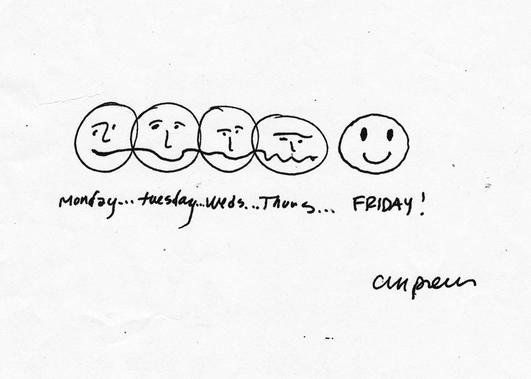 Monday... tuesday... Weds... Thurs... FRIDAY!